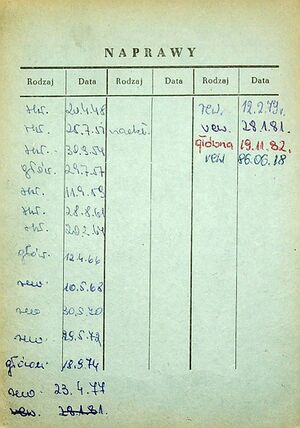 NAPRAWY
Rodzaj Data Rodzaj Data Rodzaj Data
20.4.48
25.7.51
30.9.54
głów. 29.7.57
11.9.59
28.8.61
20.2.64
głów. 12.4.66
rew 10.5.68
rew 30.5.70
rew 29.5.72
18.9.74
rew 23.4.77
rew. 28.1.81.
rew. 12.2.79r.
rew. 28.1.81.
główna 19.11.82.
rew 86.06.18